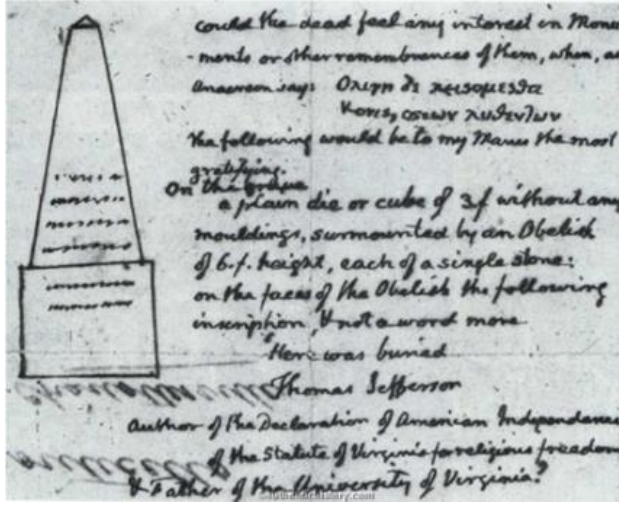 could the dead feel any interest in Monu
-ments or other remembrances of them, when, as
Anacreon says Ολιγη δε κεισομεσθα
Κονις, οστεων λυθεντων
the following would be to my Manes the most
gratifying.
On the grave
a plain die or cube of 3.f without any
mouldings, surmounted by an Obelisk
of 6.f. height, each of a single stone:
on the faces of the Obelisk the following
inscription, & not a word more
"Here was buried
Thomas Jefferson
Author of the Declaration of American Independance
of the Statute of Virginia for religious freedom
& Father of the University of Virginia."